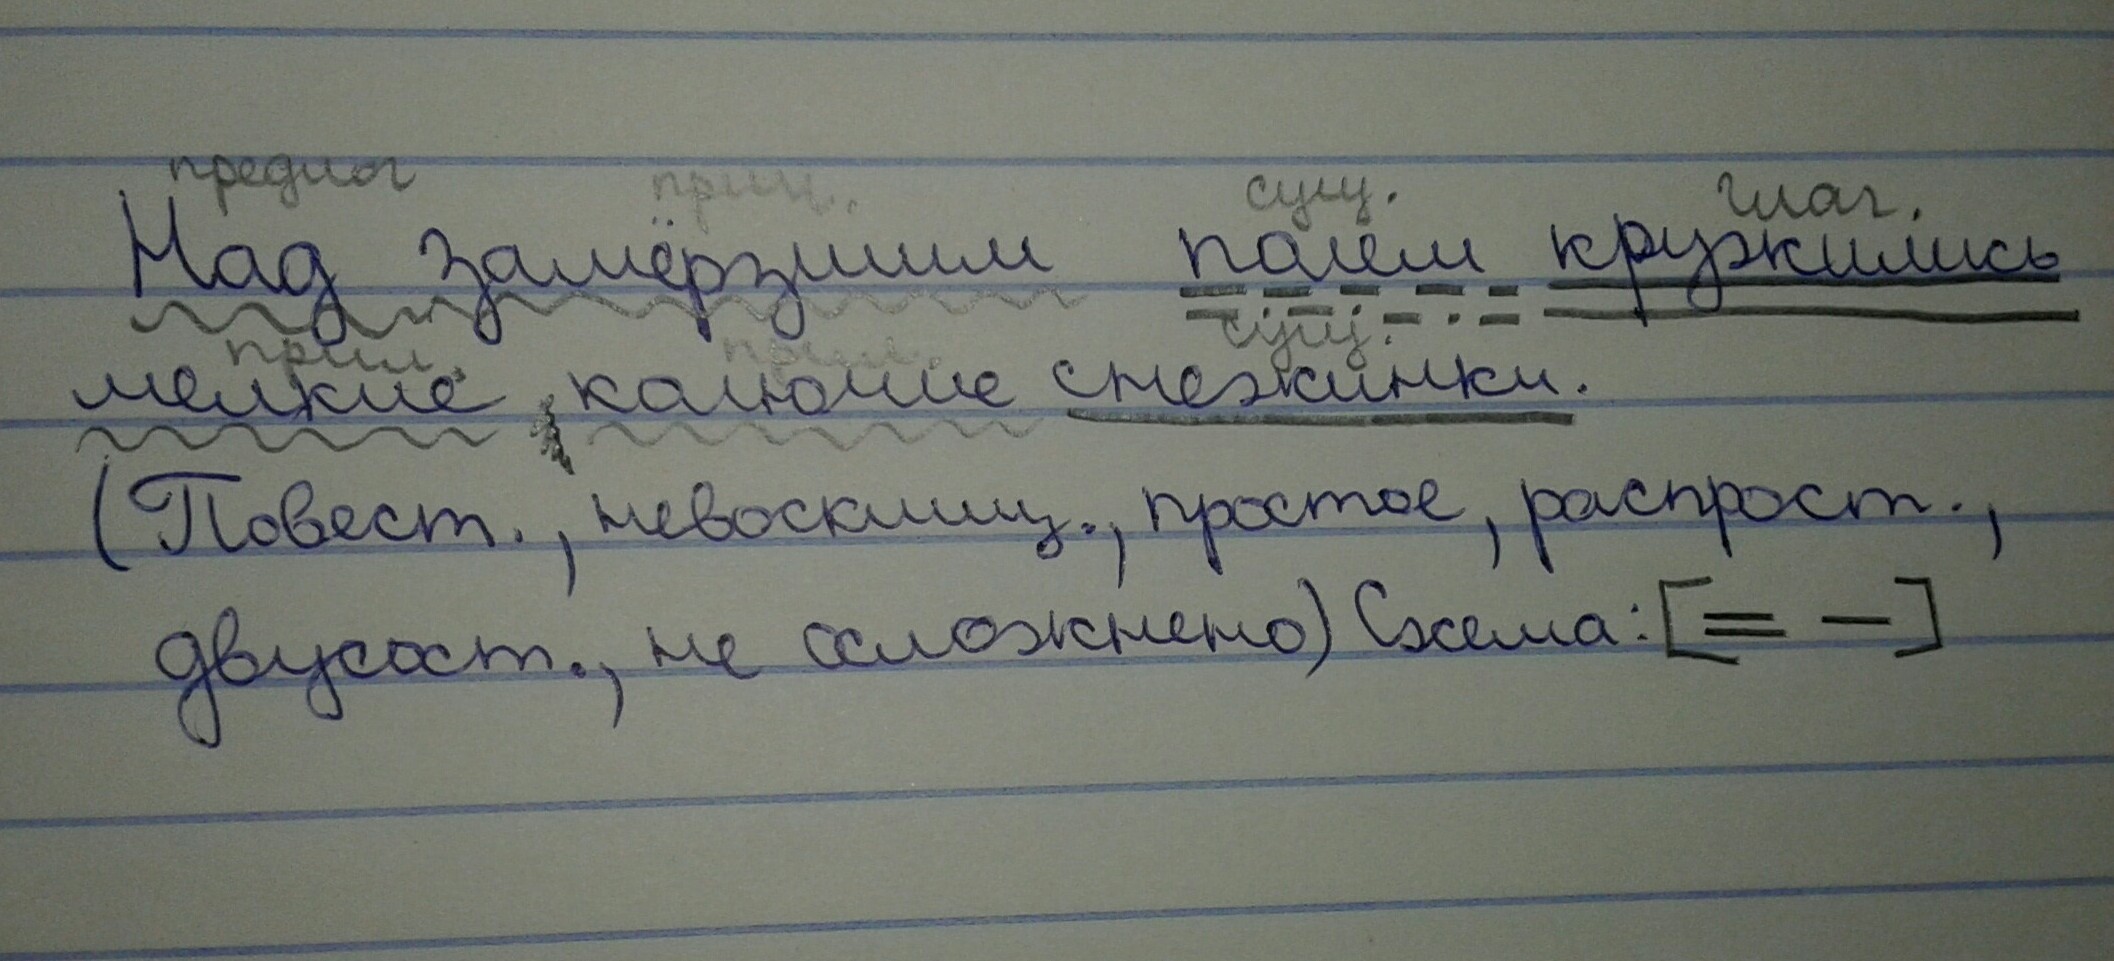 предлог прич. сущ. глаг.
Над замёрзшим полем кружились
прил. прил. сущ.
мелкие колючие снежинки.
(Повест., невосклиц., простое, распрост.,
двусост., не осложнено) Схема: [= –]